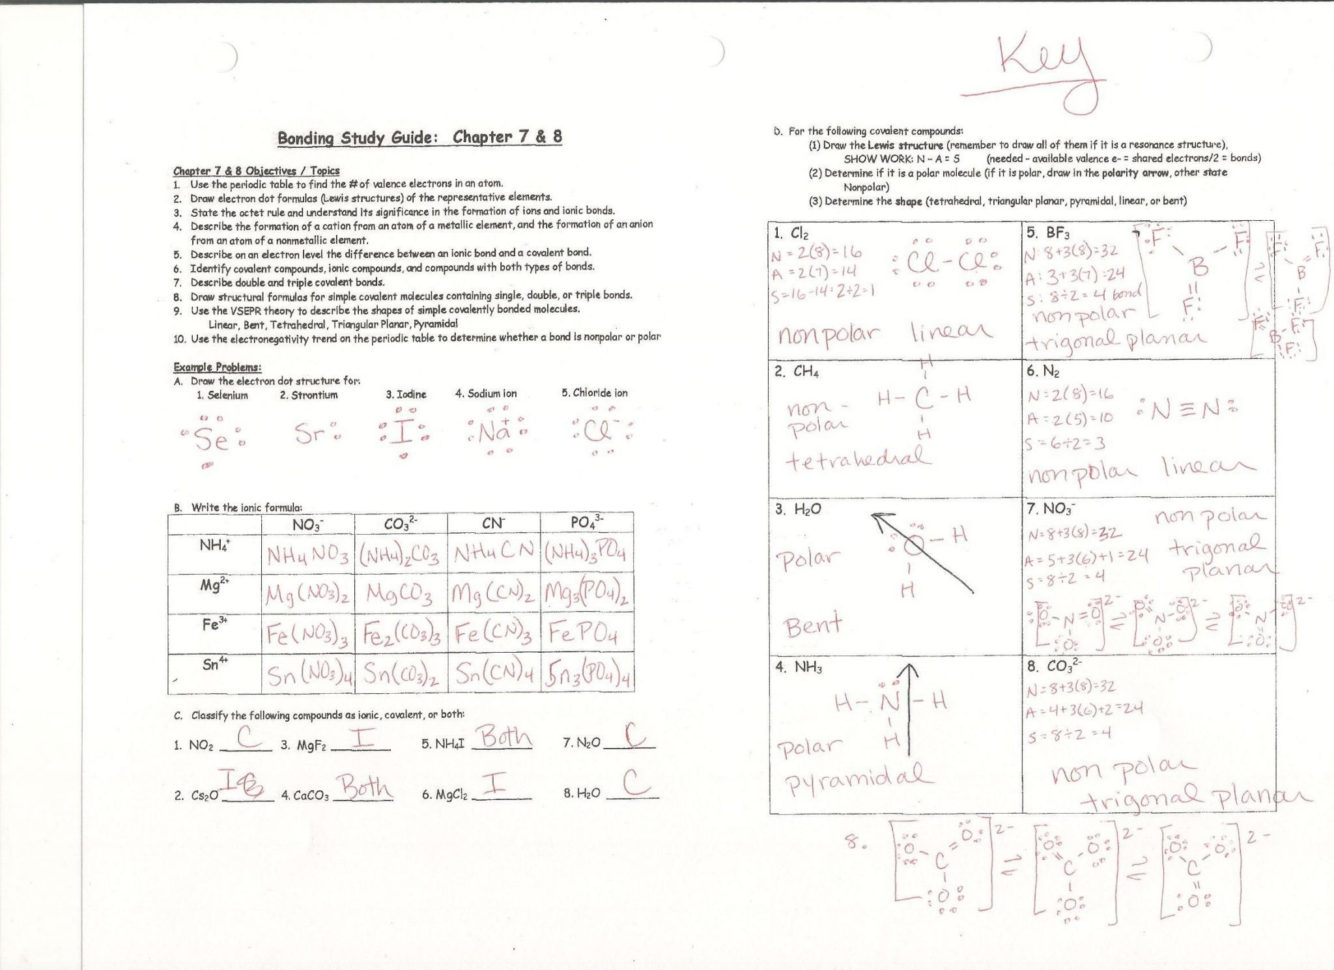 Key
Bonding Study Guide: Chapter 7 & 8
Chapter 7 & 8 Objectives / Topics
1. Use the periodic table to find the # of valence electrons in an atom.
2. Draw electron dot formulas (Lewis structures) of the representative elements.
3. State the octet rule and understand its significance in the formation of ions and ionic bonds.
4. Describe the formation of a cation from an atom of a metallic element, and the formation of an anion
from an atom of a nonmetallic element.
5. Describe on an electron level the difference between an ionic bond and a covalent bond.
6. Identify covalent compounds, ionic compounds, and compounds with both types of bonds.
7. Describe double and triple covalent bonds.
8. Draw structural formulas for simple covalent molecules containing single, double, or triple bonds.
9. Use the VSEPR theory to describe the shapes of simple covalently bonded molecules.
Linear, Bent, Tetrahedral, Triangular Planar, Pyramidal
10. Use the electronegativity trend on the periodic table to determine whether a bond is nonpolar or polar
Example Problems:
A. Draw the electron dot structure for:
1. Selenium 2. Strontium 3. Iodine 4. Sodium ion 5. Chloride ion
Se Sr I Na+ Cl-
B. Write the ionic formula:
NO3- CO3 2- CN- PO4 3-
NH4+ NH4NO3 (NH4)2CO3 NH4CN (NH4)3PO4
Mg2+ Mg(NO3)2 MgCO3 Mg(CN)2 Mg3(PO4)2
Fe3+ Fe(NO3)3 Fe2(CO3)3 Fe(CN)3 FePO4
Sn4+ Sn(NO3)4 Sn(CO3)2 Sn(CN)4 Sn3(PO4)4
C. Classify the following compounds as ionic, covalent, or both:
1. NO2 C 3. MgF2 I 5. NH4I Both 7. N2O C
2. Cs2O I 4. CaCO3 Both 6. MgCl2 I 8. H2O C
D. For the following covalent compounds:
(1) Draw the Lewis structure (remember to draw all of them if it is a resonance structure),
SHOW WORK: N - A = S (needed - available valence e- = shared electrons/2 = bonds)
(2) Determine if it is a polar molecule (if it is polar, draw in the polarity arrow, other state
Nonpolar)
(3) Determine the shape (tetrahedral, triangular planar, pyramidal, linear, or bent)
1. Cl2
N = 2(8)=16
A = 2(7)=14
S=16-14=2÷2=1
Cl-Cl
nonpolar linear
5. BF3
N: 8+3(8)=32
A: 3+3(7)=24
S: 8÷2=4 bond
nonpolar
trigonal planar
F F
B
F
F F
B
F
F F
B
F
2. CH4
non-
polar
tetrahedral
H
H-C-H
H
6. N2
N=2(8)=16
A=2(5)=10
S=6÷2=3
N≡N
nonpolar linear
3. H2O
Polar
O-H
H
Bent
7. NO3-
N=8+3(8)=32
A=5+3(6)+1=24
S=8÷2=4
non polar
trigonal
planar
O-N=O 2-
O
O N O 2-
O
O N O 2-
O
4. NH3
H-N-H
H
polar
pyramidal
8. CO3 2-
N=8+3(8)=32
A=4+3(6)+2=24
S=8÷2=4
non polar
trigonal planar
8.
O O 2-
C
O
O O 2-
C
O
O O 2-
C
O